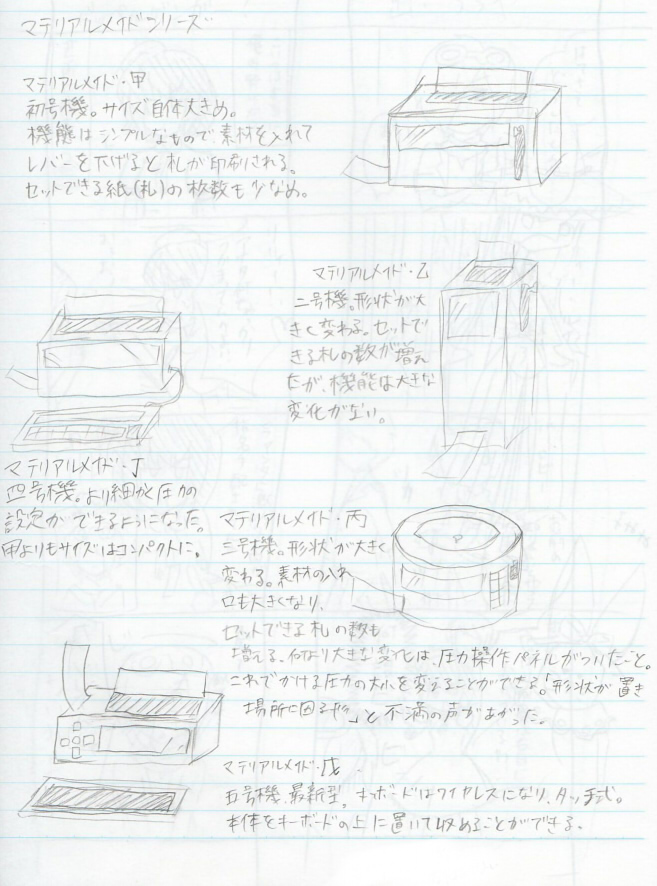 マテリアルメイドシリーズ
マテリアルメイド・甲
初号機。サイズ自体大きめ。
機能はシンプルなもので、素材を入れて
レバーを下げると札が印刷される。
セットできる紙(札)の枚数も少なめ。
マテリアルメイド・乙
二号機。形状が大
きく変わる。セットで
きる札の数が増え
たが、機能は大きな
変化がない。
マテリアルメイド・丙
三号機。形状が大きく
変わる。素材の入れ
口も大きくなり、
セットできる札の数も
増える。何より大きな変化は、圧力操作パネルがついたこと。
これでかける圧力の大小を変えることができる。「形状が置き
場所に困る形」と不満の声があがった。
マテリアルメイド・丁
四号機。より細かく圧力の
設定ができるようになった。
甲よりもサイズはコンパクトに。
マテリアルメイド・戊
五号機、最新型。キーボードはワイヤレスになり、タッチ式。
本体をキーボードの上に置いて収めることができる。